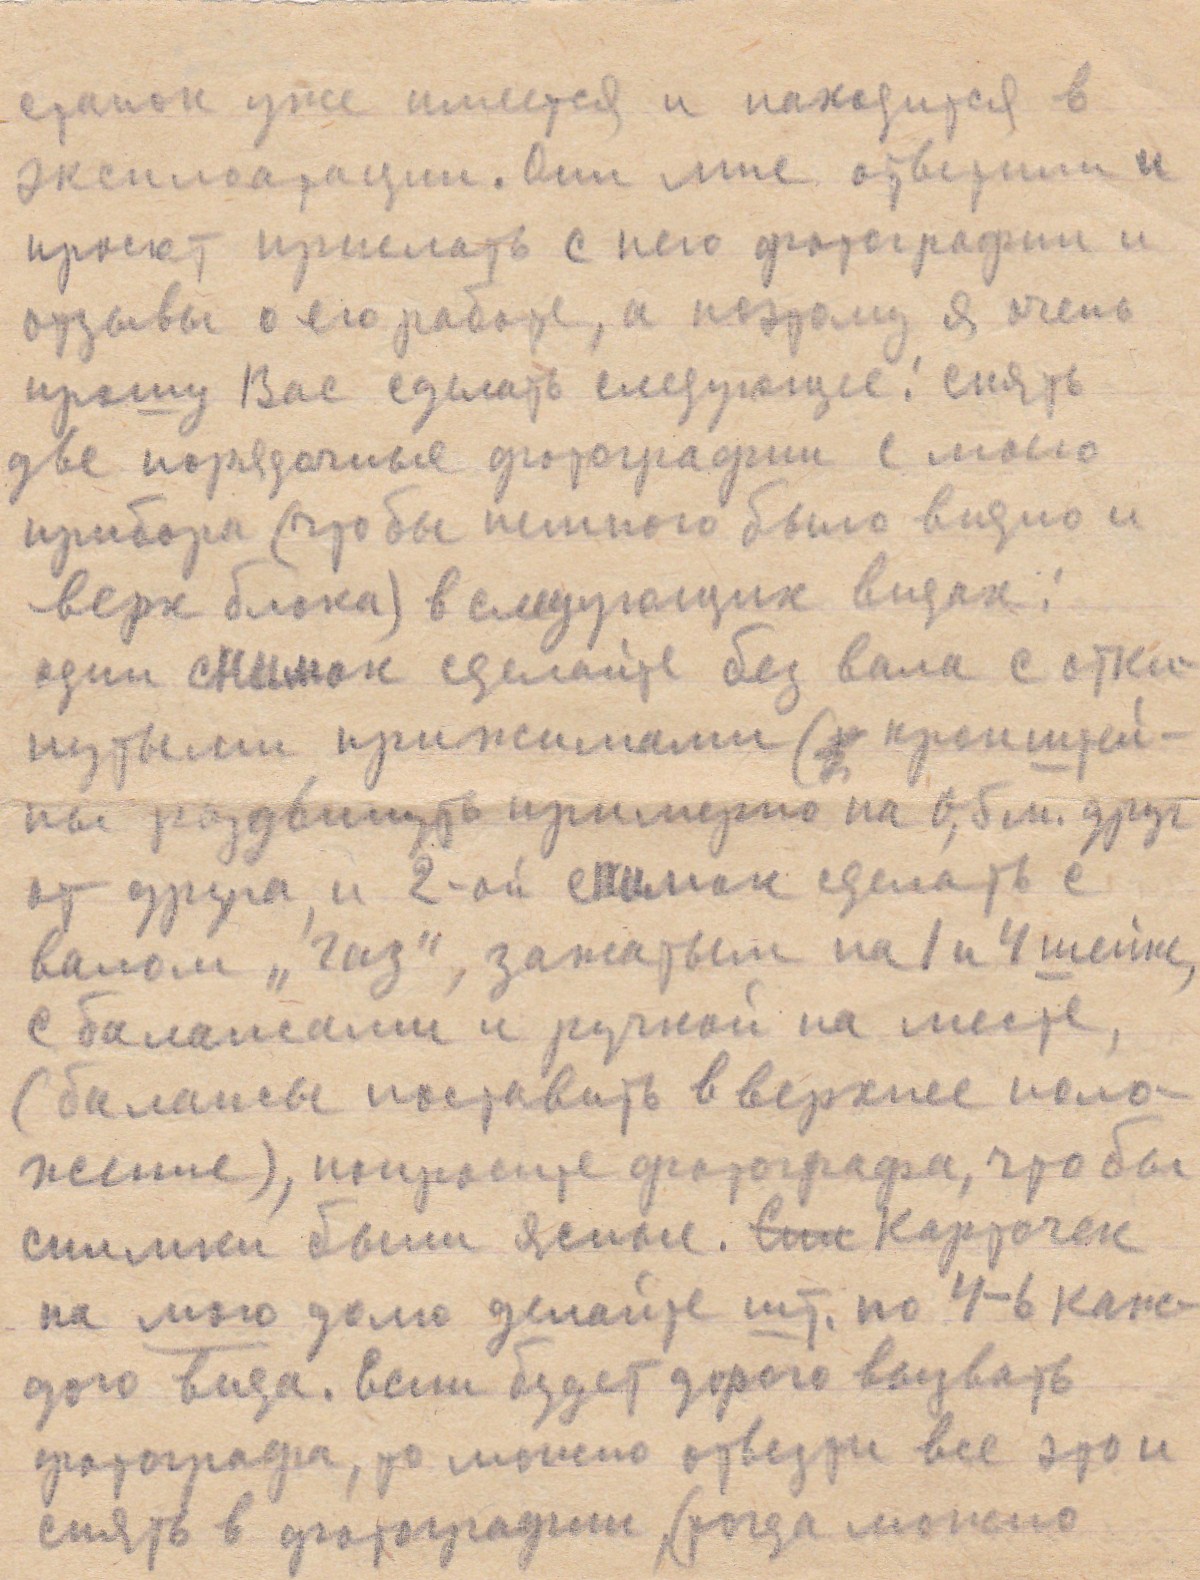 станок уже имеется и находится в
эксплоатации. Они мне ответили и
просют прислать с него фотографии и
отзывы о его работе, а поэтому я очень
прошу Вас сделать следующее: снять
две порядочные фотографии с моего
прибора (чтобы немного было видно и
верх блока) в следующих видах:
один снимок сделайте без вала с отки-
нутыми прижимами ( кронштей-
ны раздвинуть примерно на 0,5 м. друг
от друга, и 2-ой снимок сделать с
валом „Газ“, зажатым на 1 и 4 шейке,
с балансами и ручкой на месте,
(балансы поставить в верхнее поло-
жение), попросите фотографа, чтобы
снимки были ясные. Карточек
на мою долю делайте шт. по 4-6 каж-
дого вида. Если будет дорого вызвать
фотографа, то можно отвезти все это и
снять в фотографии (тогда можно